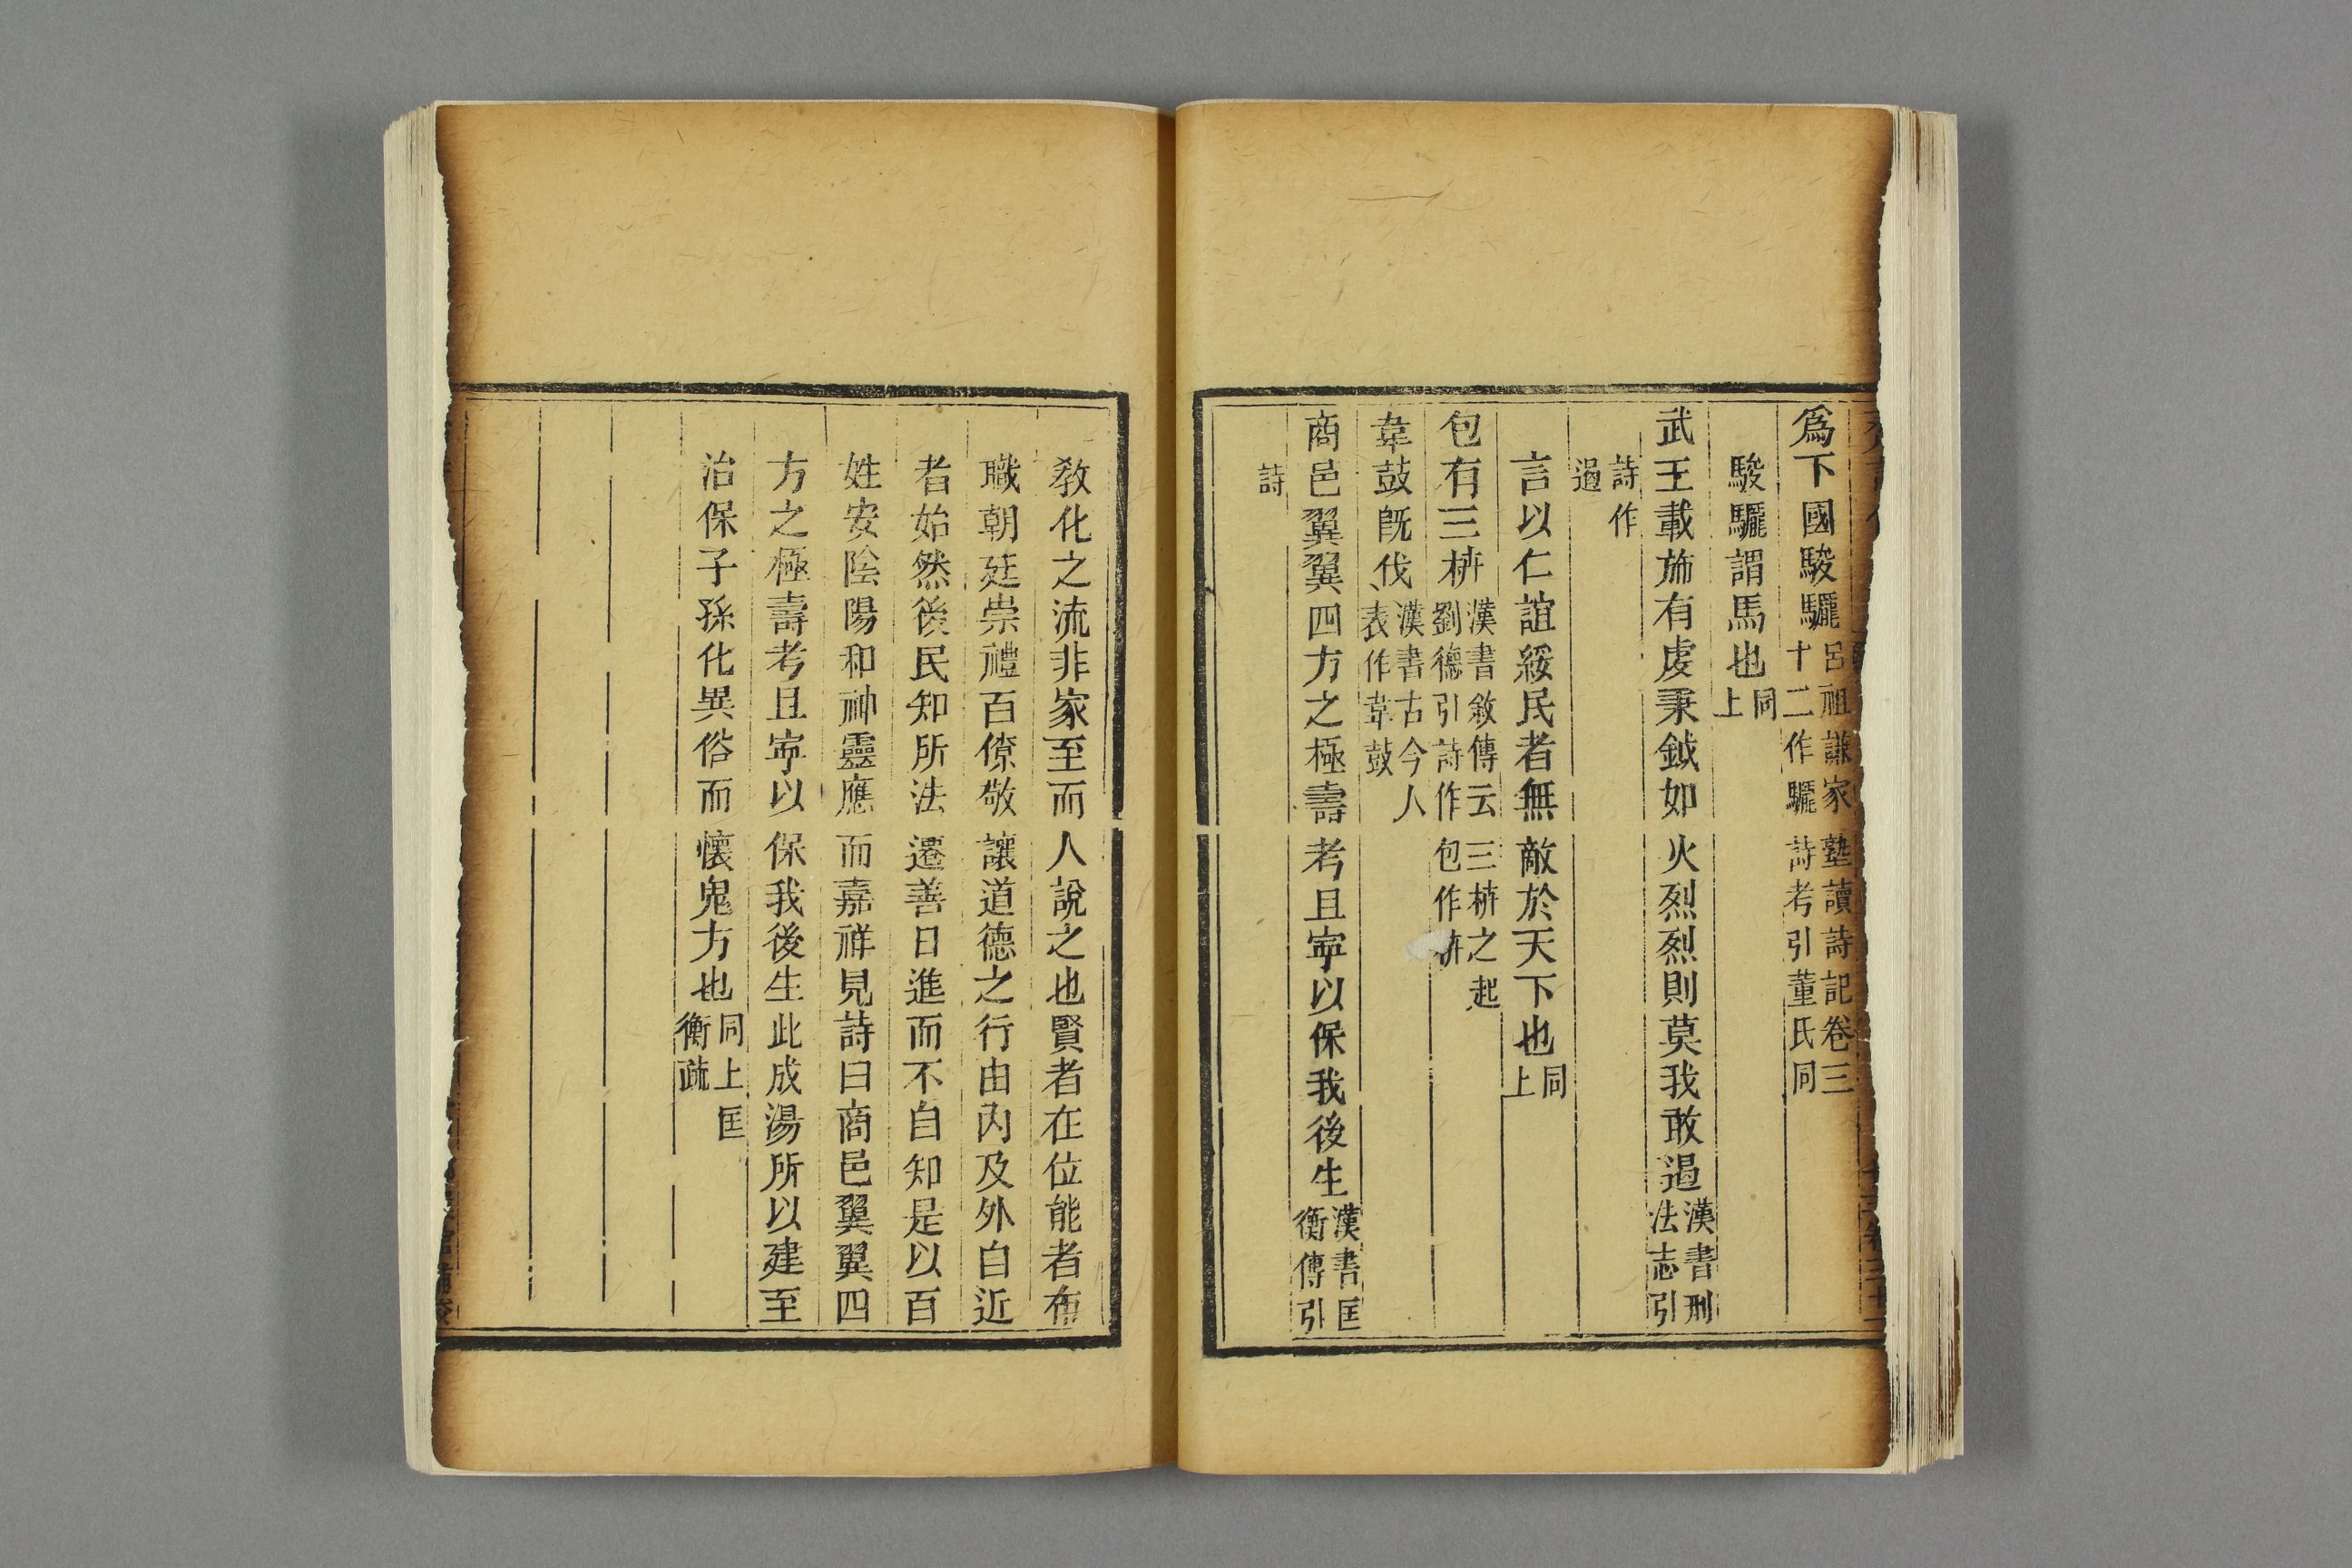 爲下國駿驪呂祖謙家塾讀詩記卷三十二作驪詩考引董氏同
駿驪謂馬也同上
武王載斾有虔秉鉞如火烈烈則莫我敢遏漢書刑法志引
詩作遏
言以仁誼綏民者無敵於天下也同上
包有三枿漢書敘傳云三枿之起劉德引詩作包作枿
韋鼓旣伐漢書古今人表作韋鼓
商邑翼翼四方之極壽考且寧以保我後生漢書匡衡傳引
詩
敎化之流非家至而人說之也賢者在位能者布
職朝廷崇禮百僚敬讓道德之行由內及外自近
者始然後民知所法遷善日進而不自知是以百
姓安陰陽和神靈應而嘉祥見詩曰商邑翼翼四
方之極壽考且寧以保我後生此成湯所以建至
治保子孫化異俗而懷鬼方也同上匡衡疏